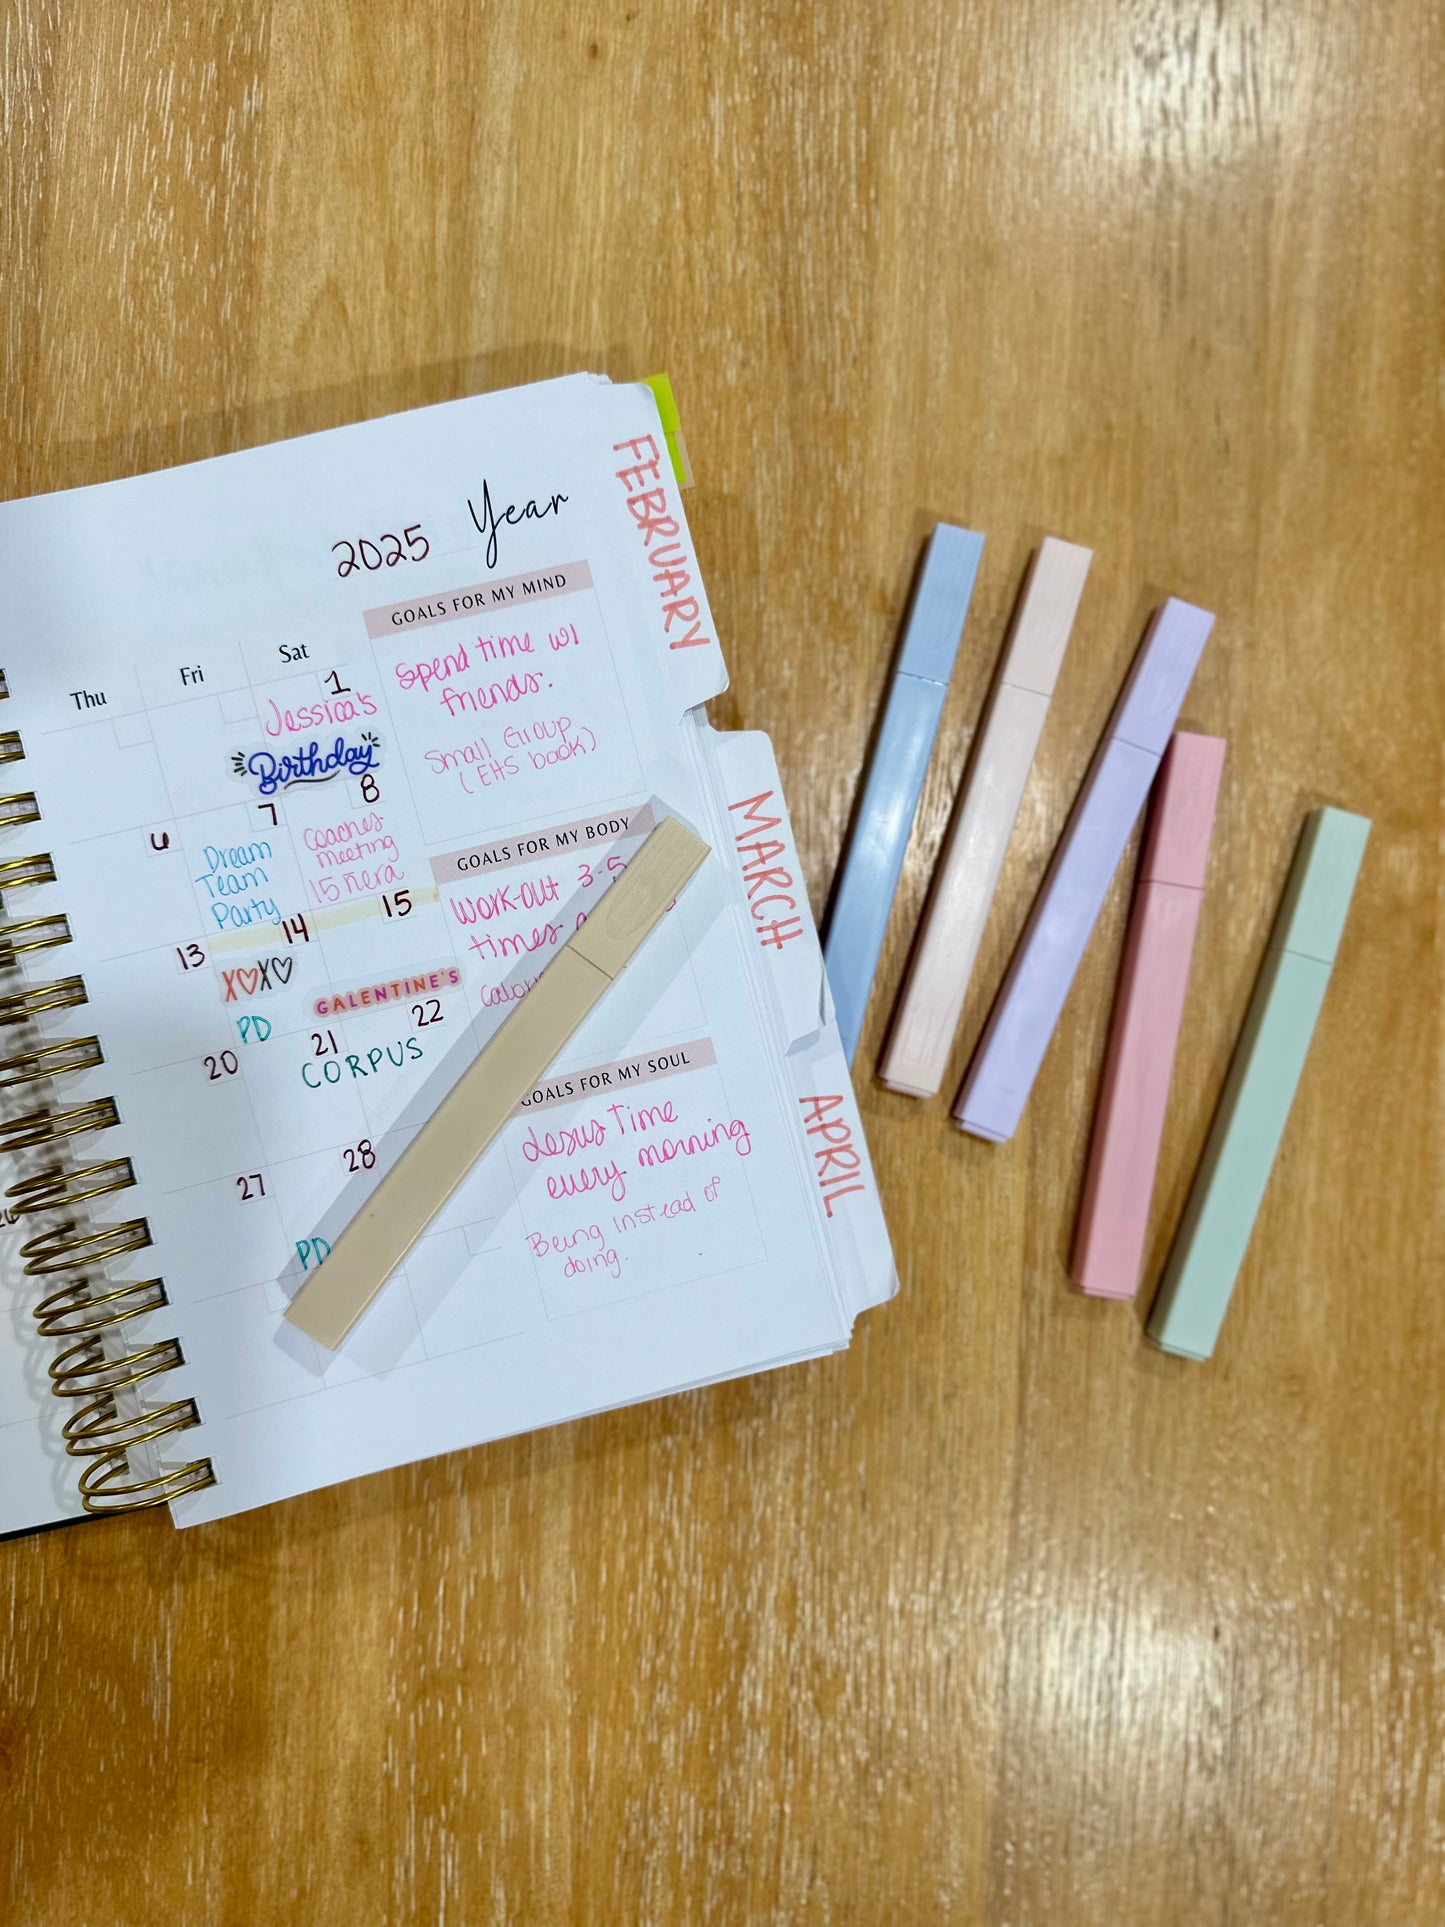 2025 Year
Thu Fri Sat
1
Jessica's
Birthday
6 7 8
Dream
Team
Party
Coaches
meeting
13 14 15
XOXO
PD
GALENTINE'S
20 21 22
CORPUS
27 28
PD
GOALS FOR MY MIND
Spend time w/
friends.
Small Group
(EHS book)
GOALS FOR MY BODY
Work-out 3-5
times
GOALS FOR MY SOUL
Jesus Time
every morning
Being instead of
doing.
FEBRUARY
MARCH
APRIL